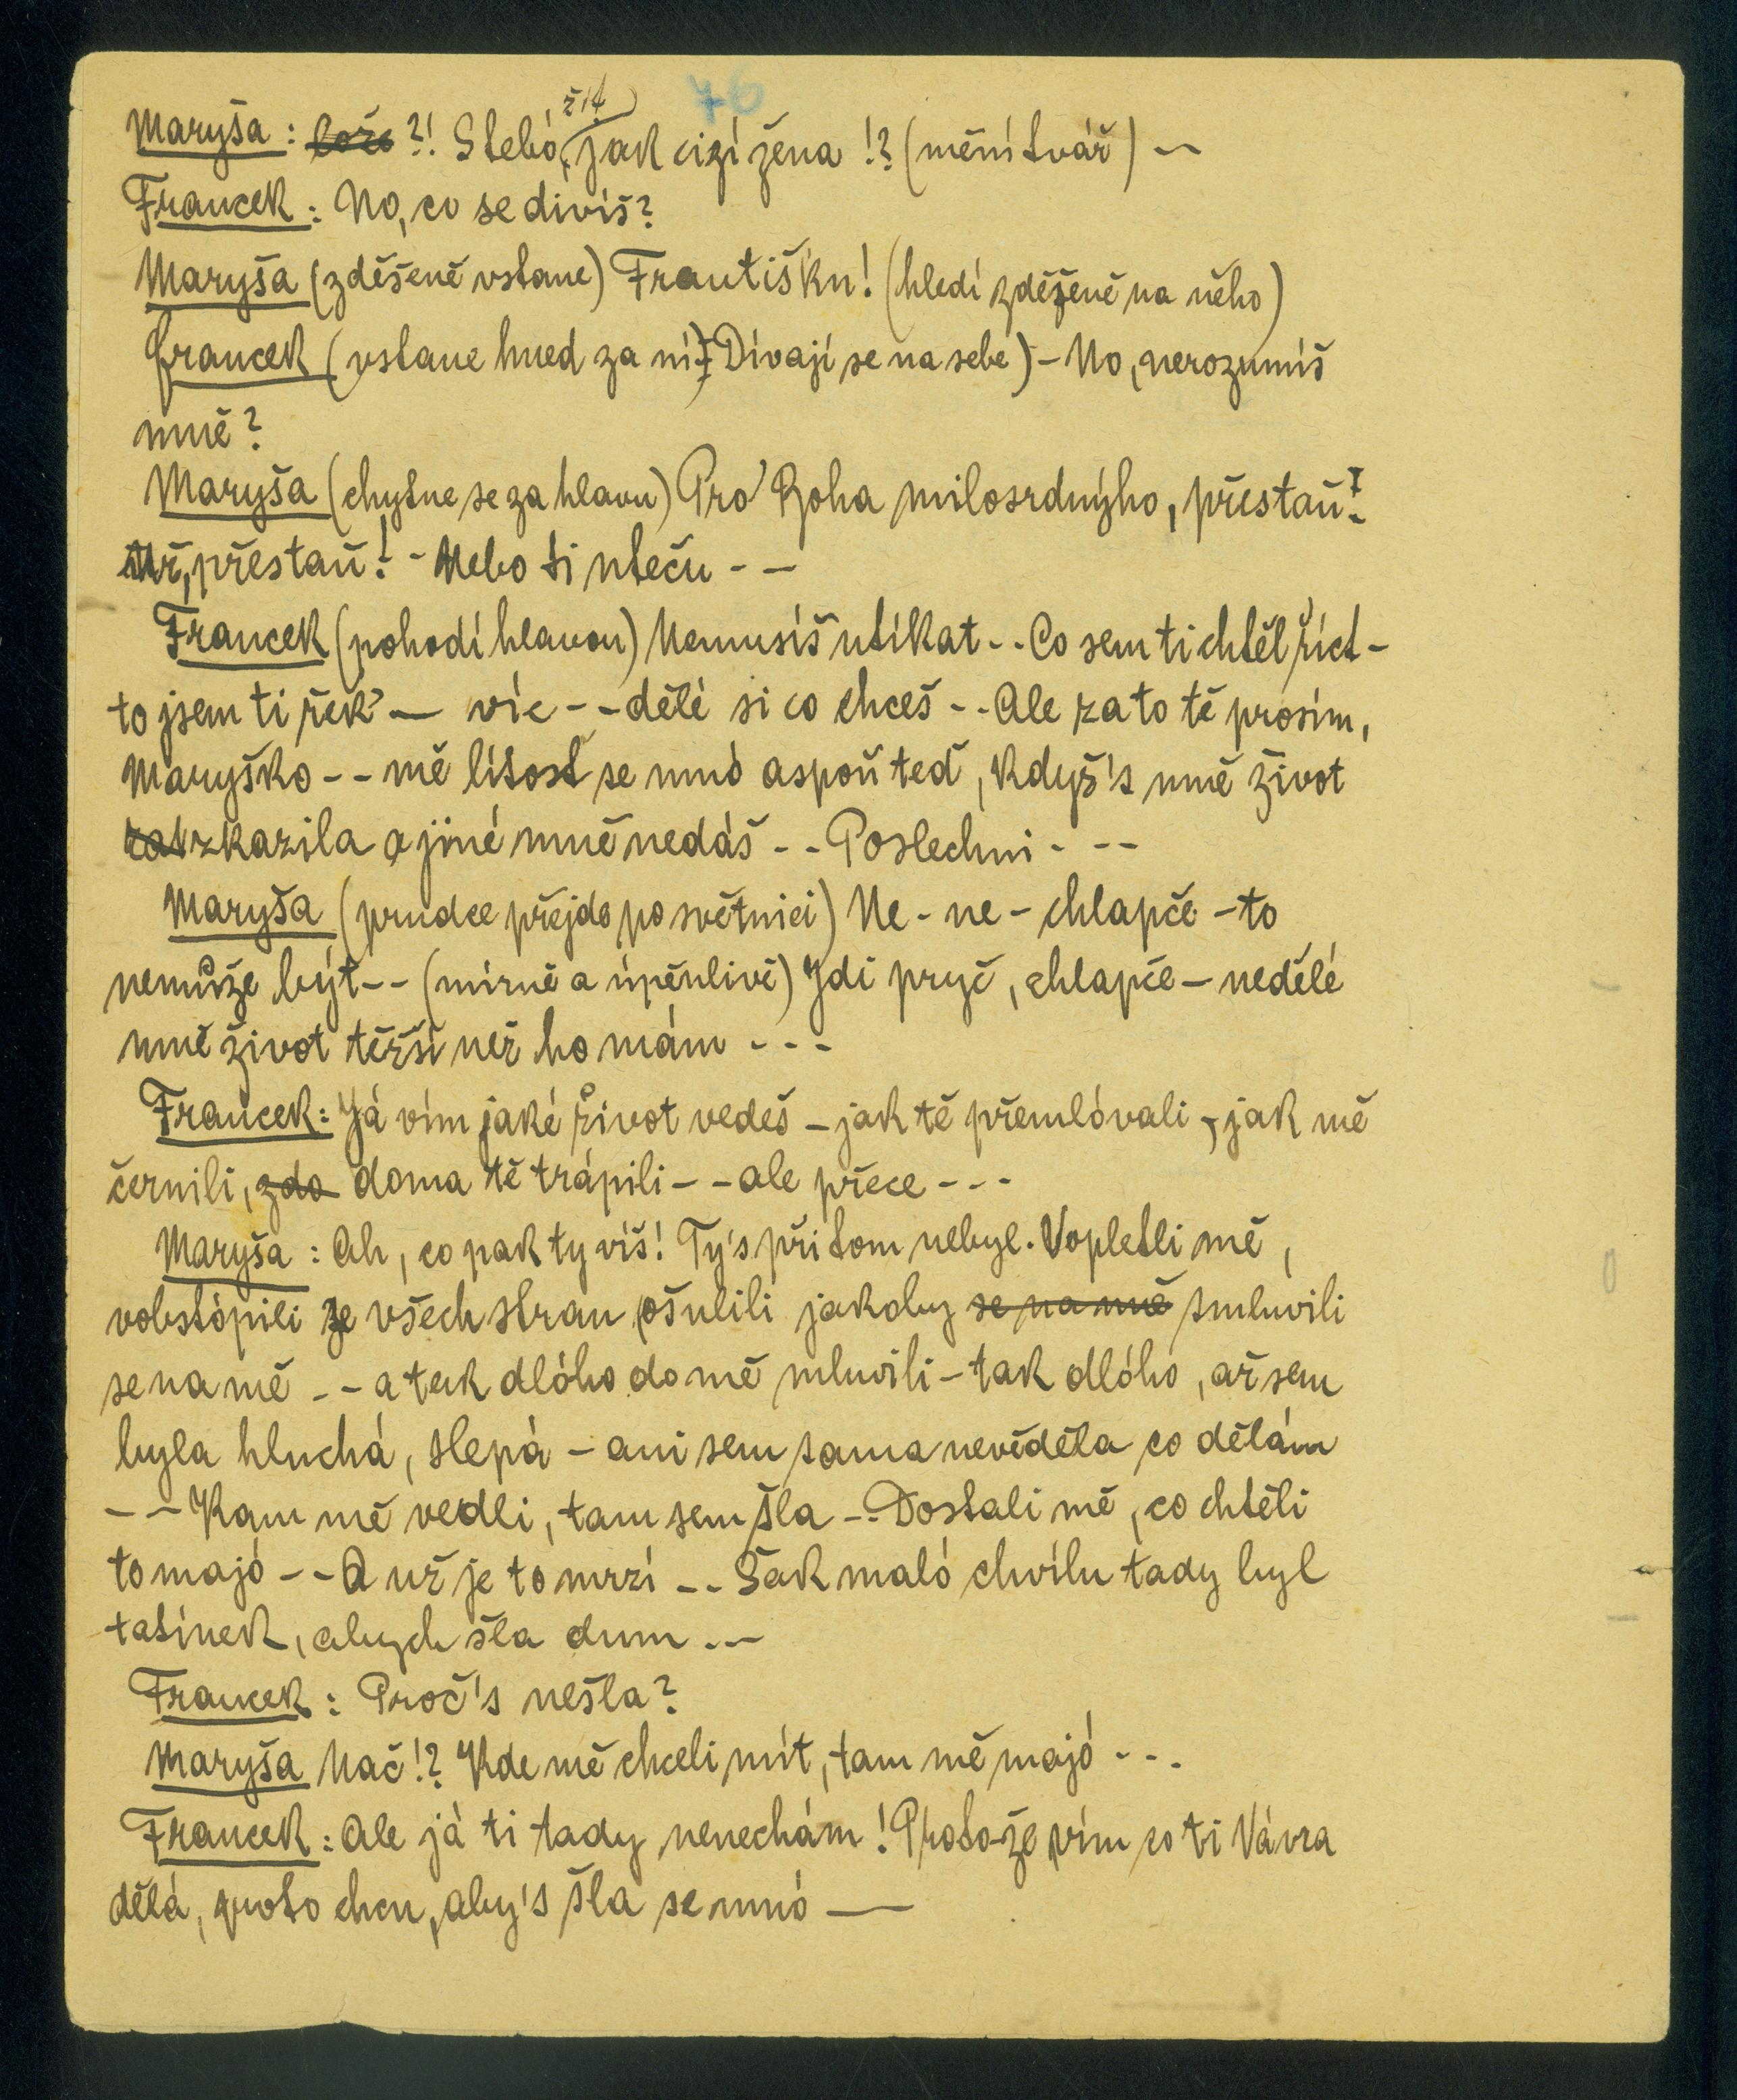 76
Maryša: ?! S tebó, žít jak cizí žena!? (mění tvář) --
Francek: No, co se divíš?
Maryša (zděšeně vstane) Františku! (hledí zděšeně na něho)
Francek (vstane hned za ní) Dívají se na sebe) - No, nerozumíš
mně?
Maryša (chytne se za hlavu) Pro Boha milosrdnýho, přestaň!
Už, přestaň! - Nebo ti uteču --
Francek (pohodí hlavou) Nemusíš utíkat -- Co sem ti chtěl říct -
to jsem ti řek' — víc -- dělé si co chceš -- Ale za to tě prosím,
Maryško -- mě lítost se mnó aspoň teď, když's mně život
zkazila a jiné mně nedáš -- Poslechni ---
Maryša (prudce přejde po světnici) Ne - ne - chlapče - to
nemůže být -- (mírně a úpěnlivě) Jdi pryč, chlapče - nedělé
mně život těžší než ho mám ---
Francek: Já vím jaké život vedeš - jak tě přemlóvali, jak mě
černili, zdo doma tě trápili -- ale přece ---
Maryša: Ah, co pak ty víš! Ty's při tom nebyl. Vopletli mě,
vobstópili ze všech stran, ošulili jakoby se na mně smluvili
se na mě -- a tak dlóho do mě mluvili - tak dlóho, až sem
byla hluchá, slepá - ani sem sama nevěděla co dělám
-- Kam mě vedli, tam sem šla -- Dostali mě, co chtěli
to majó -- A už je to mrzí -- Šak maló chvílu tady byl
tatínek, abych šla dum --
Francek: Proč's nešla?
Maryša Nač!? Kde mě chceli mít, tam mě majó ---
Francek: Ale já ti tady nenechám! Protože vím co ti Vávra
dělá, proto chcu, aby's šla se mnó —